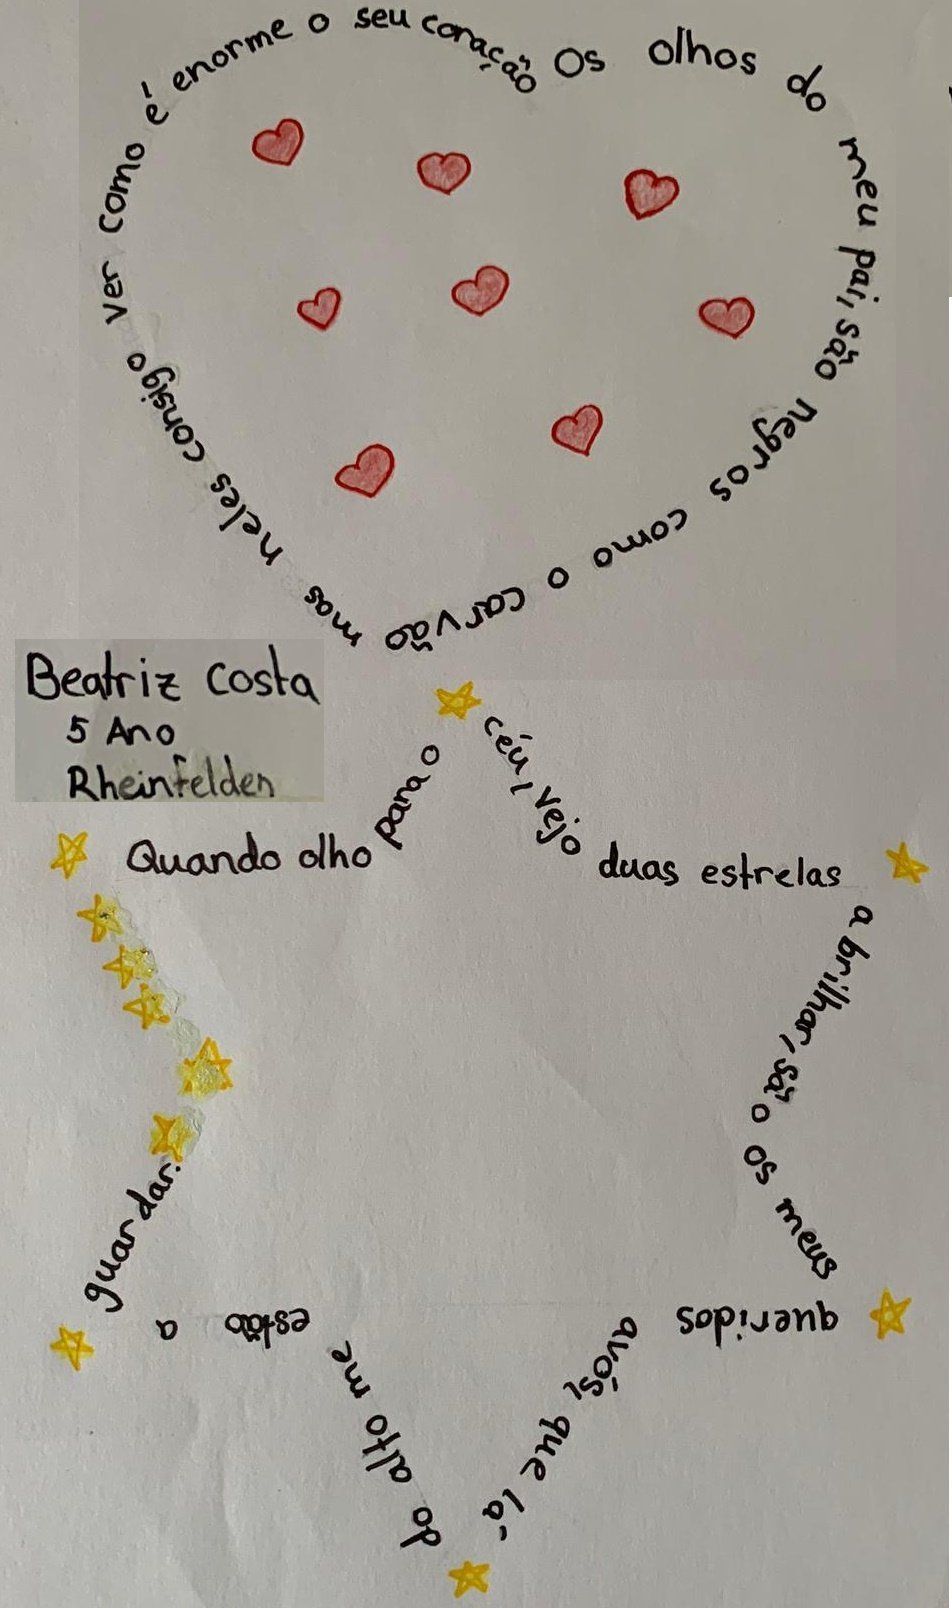 Os olhos do meu pai, são negros como o carvão mas neles consigo ver como é enorme o seu coração
Beatriz Costa
5 Ano
Rheinfelden
Quando olho para o céu, vejo duas estrelas a brilhar, são so meus queridos avós, que lá do alto me estão a guardar.